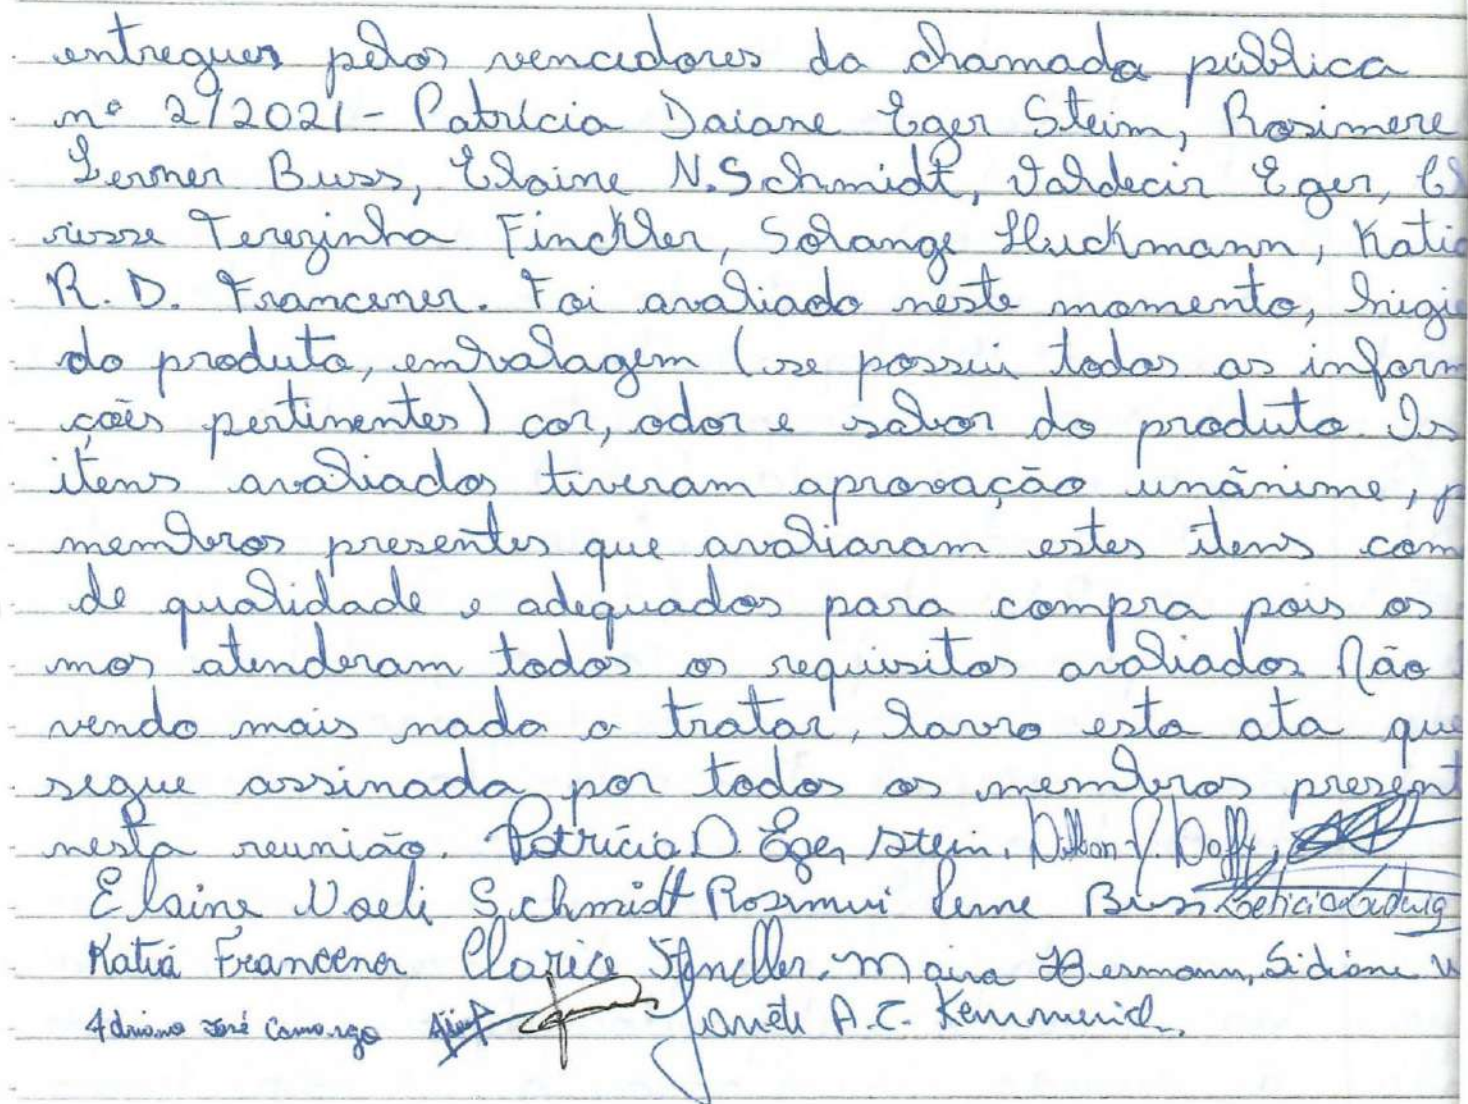 entregues pelos vencedores da chamada pública
nº 2/2021 - Patrícia Daiane Eger Steim, Rosimere
Lerner Buss, Elaine N. Schmidt, Valdecir Eger, Cl
risse Terezinha Finckler, Solange Huckmann, Katia
R. D. Francener. Foi avaliado neste momento, higie
do produto, embalagem (se possui todas as inform
ções pertinentes) cor, odor e sabor do produto. Os
itens avaliados tiveram aprovação unânime, p
membros presentes que avaliaram estes itens com
de qualidade e adequados para compra pois os
mos atenderam todos os requisitos avaliados. Não
vendo mais nada a tratar, lavro esta ata que
segue assinada por todos os membros present
nesta reunião. Patrícia D. Eger Stein,
Elaine Noeli Schmidt Buss Leticia Ludwig
Katiá Francener Clarice Maira Hermann, Sidiane
Adriano José Camargo Janete A. C. Kemmerich